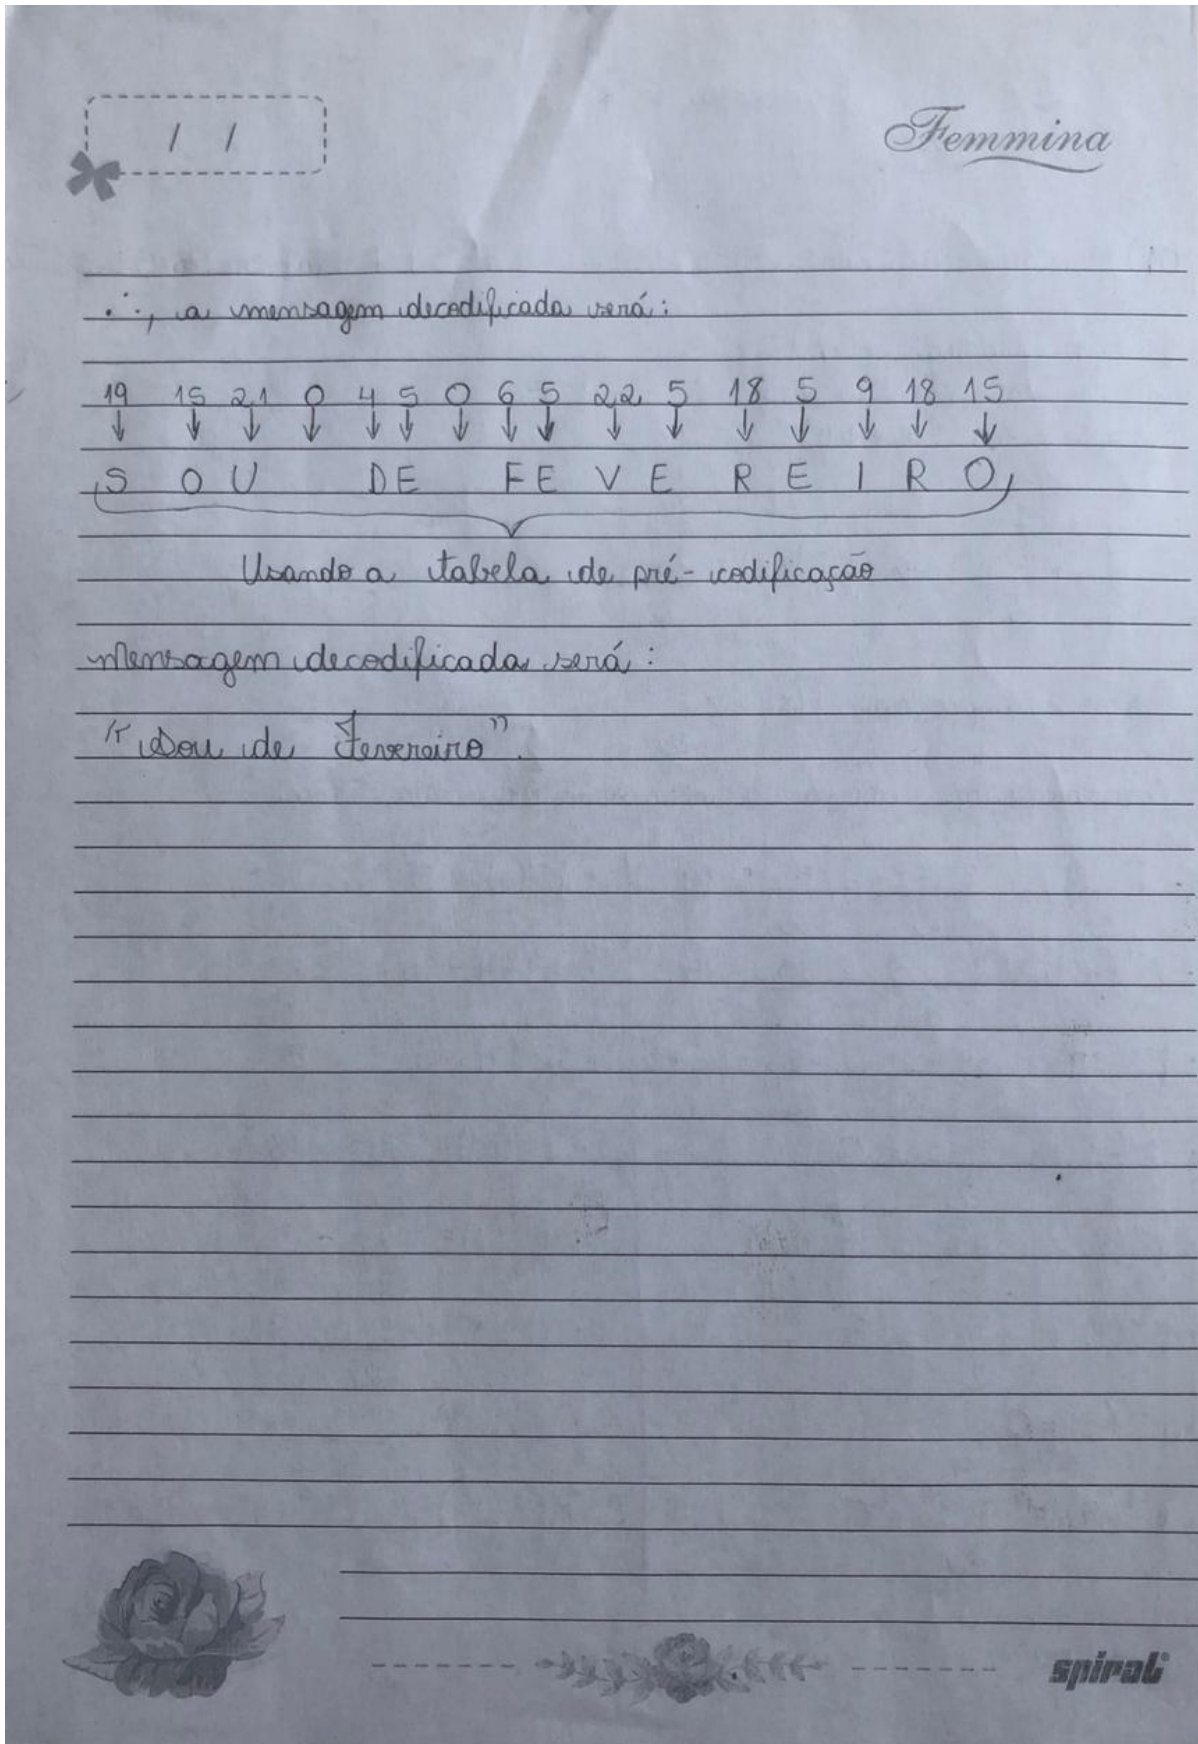 / /
Femmina
∴, a mensagem decodificada será:
19 15 21 0 4 5 0 6 5 22 5 18 5 9 18 15
↓ ↓ ↓ ↓ ↓ ↓ ↓ ↓ ↓ ↓ ↓ ↓ ↓ ↓ ↓ ↓
S O U D E F E V E R E I R O
Usando a tabela de pré-codificação
Mensagem decodificada será:
"Sou de Fevereiro".
spiral®